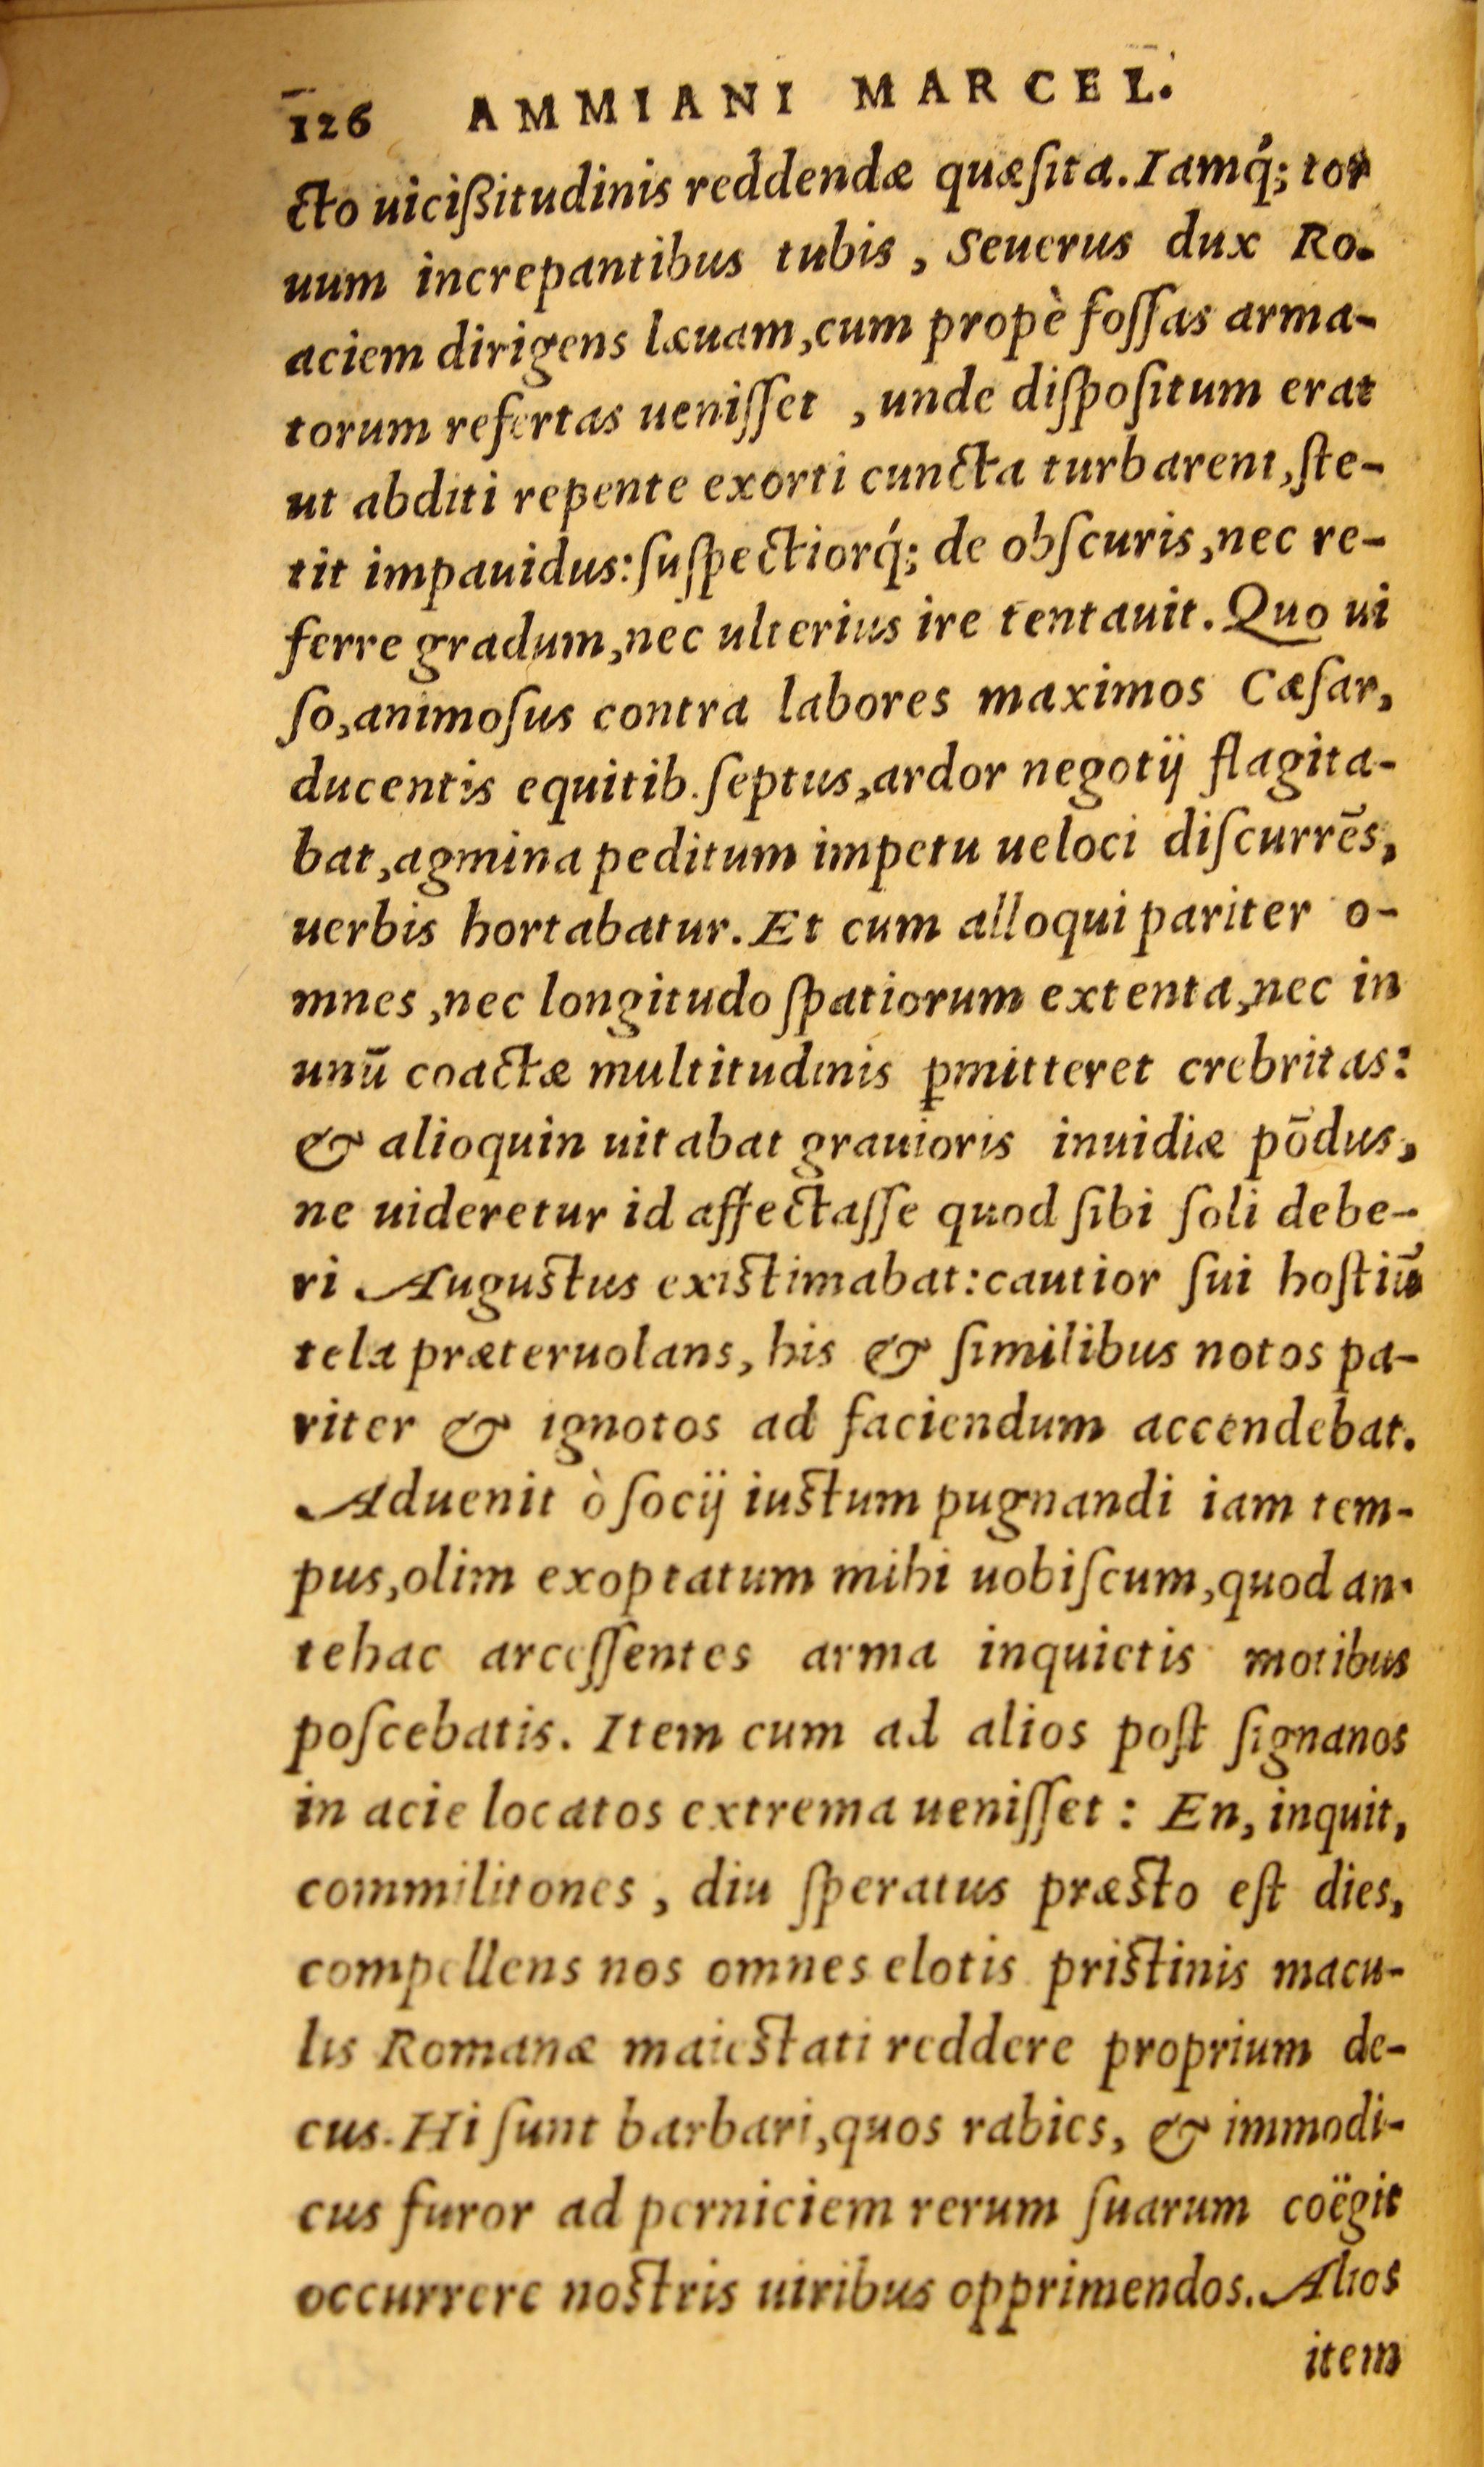 126 AMMIANI MARCEL.
cto uicißitudinis reddendæ quæſita. Iamq́; tor
uum increpantibus tubis, Seuerus dux Ro.
aciem dirigens læuam, cum propè foſſas arma-
torum refertas ueniſſet, unde diſpoſitum erat
ut abditi repente exorti cuncta turbarent, ſte-
tit impauidus: ſuſpectiorq́; de obſcuris, nec re-
ferre gradum, nec ulterius ire tentauit. Quo ui
ſo, animoſus contra labores maximos Cæſar,
ducentis equitib. ſeptus, ardor negotij flagita-
bat, agmina peditum impetu ueloci diſcurrēs,
uerbis hortabatur. Et cum alloqui pariter o-
mnes, nec longitudo ſpatiorum extenta, nec in
unū coactæ multitudinis ꝑmitteret crebritas:
& alioquin uitabat grauioris inuidiæ pōdus,
ne uideretur id affectaſſe quod ſibi ſoli debe-
ri Auguſtus exiſtimabat: cautior ſui hoſtiū
tela præteruolans, his & ſimilibus notos pa-
riter & ignotos ad faciendum accendebat.
Aduenit ò ſocij iuſtum pugnandi iam tem-
pus, olim exoptatum mihi uobiſcum, quod an-
tehac arceſſentes arma inquietis motibus
poſcebatis. Item cum ad alios poſt ſignanos
in acie locatos extrema ueniſſet: En, inquit,
commilitones, diu ſperatus præſto eſt dies,
compellens nos omnes elotis priſtinis macu-
lis Romanæ maieſtati reddere proprium de-
cus. Hi ſunt barbari, quos rabies, & immodi-
cus furor ad perniciem rerum ſuarum coëgit
occurrere noſtris uiribus opprimendos. Alios
item